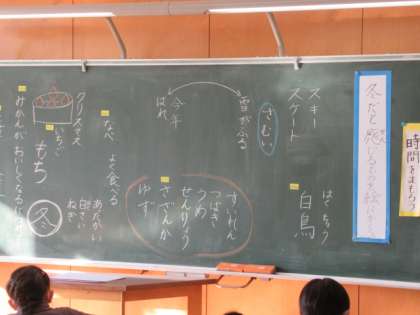 時間をまもろう
冬だと感じるものを絵にかこう
スキー
スケート
はくちょう
白鳥
さむい
雪がふる
今年
はれ
すいれん
つばき
うめ
せんりょう
さざんか
ゆず
なべ よく食べる
あたかい
白さい
ねぎ
クリスマス
いちご
もち
冬
みかんがおいしくなる